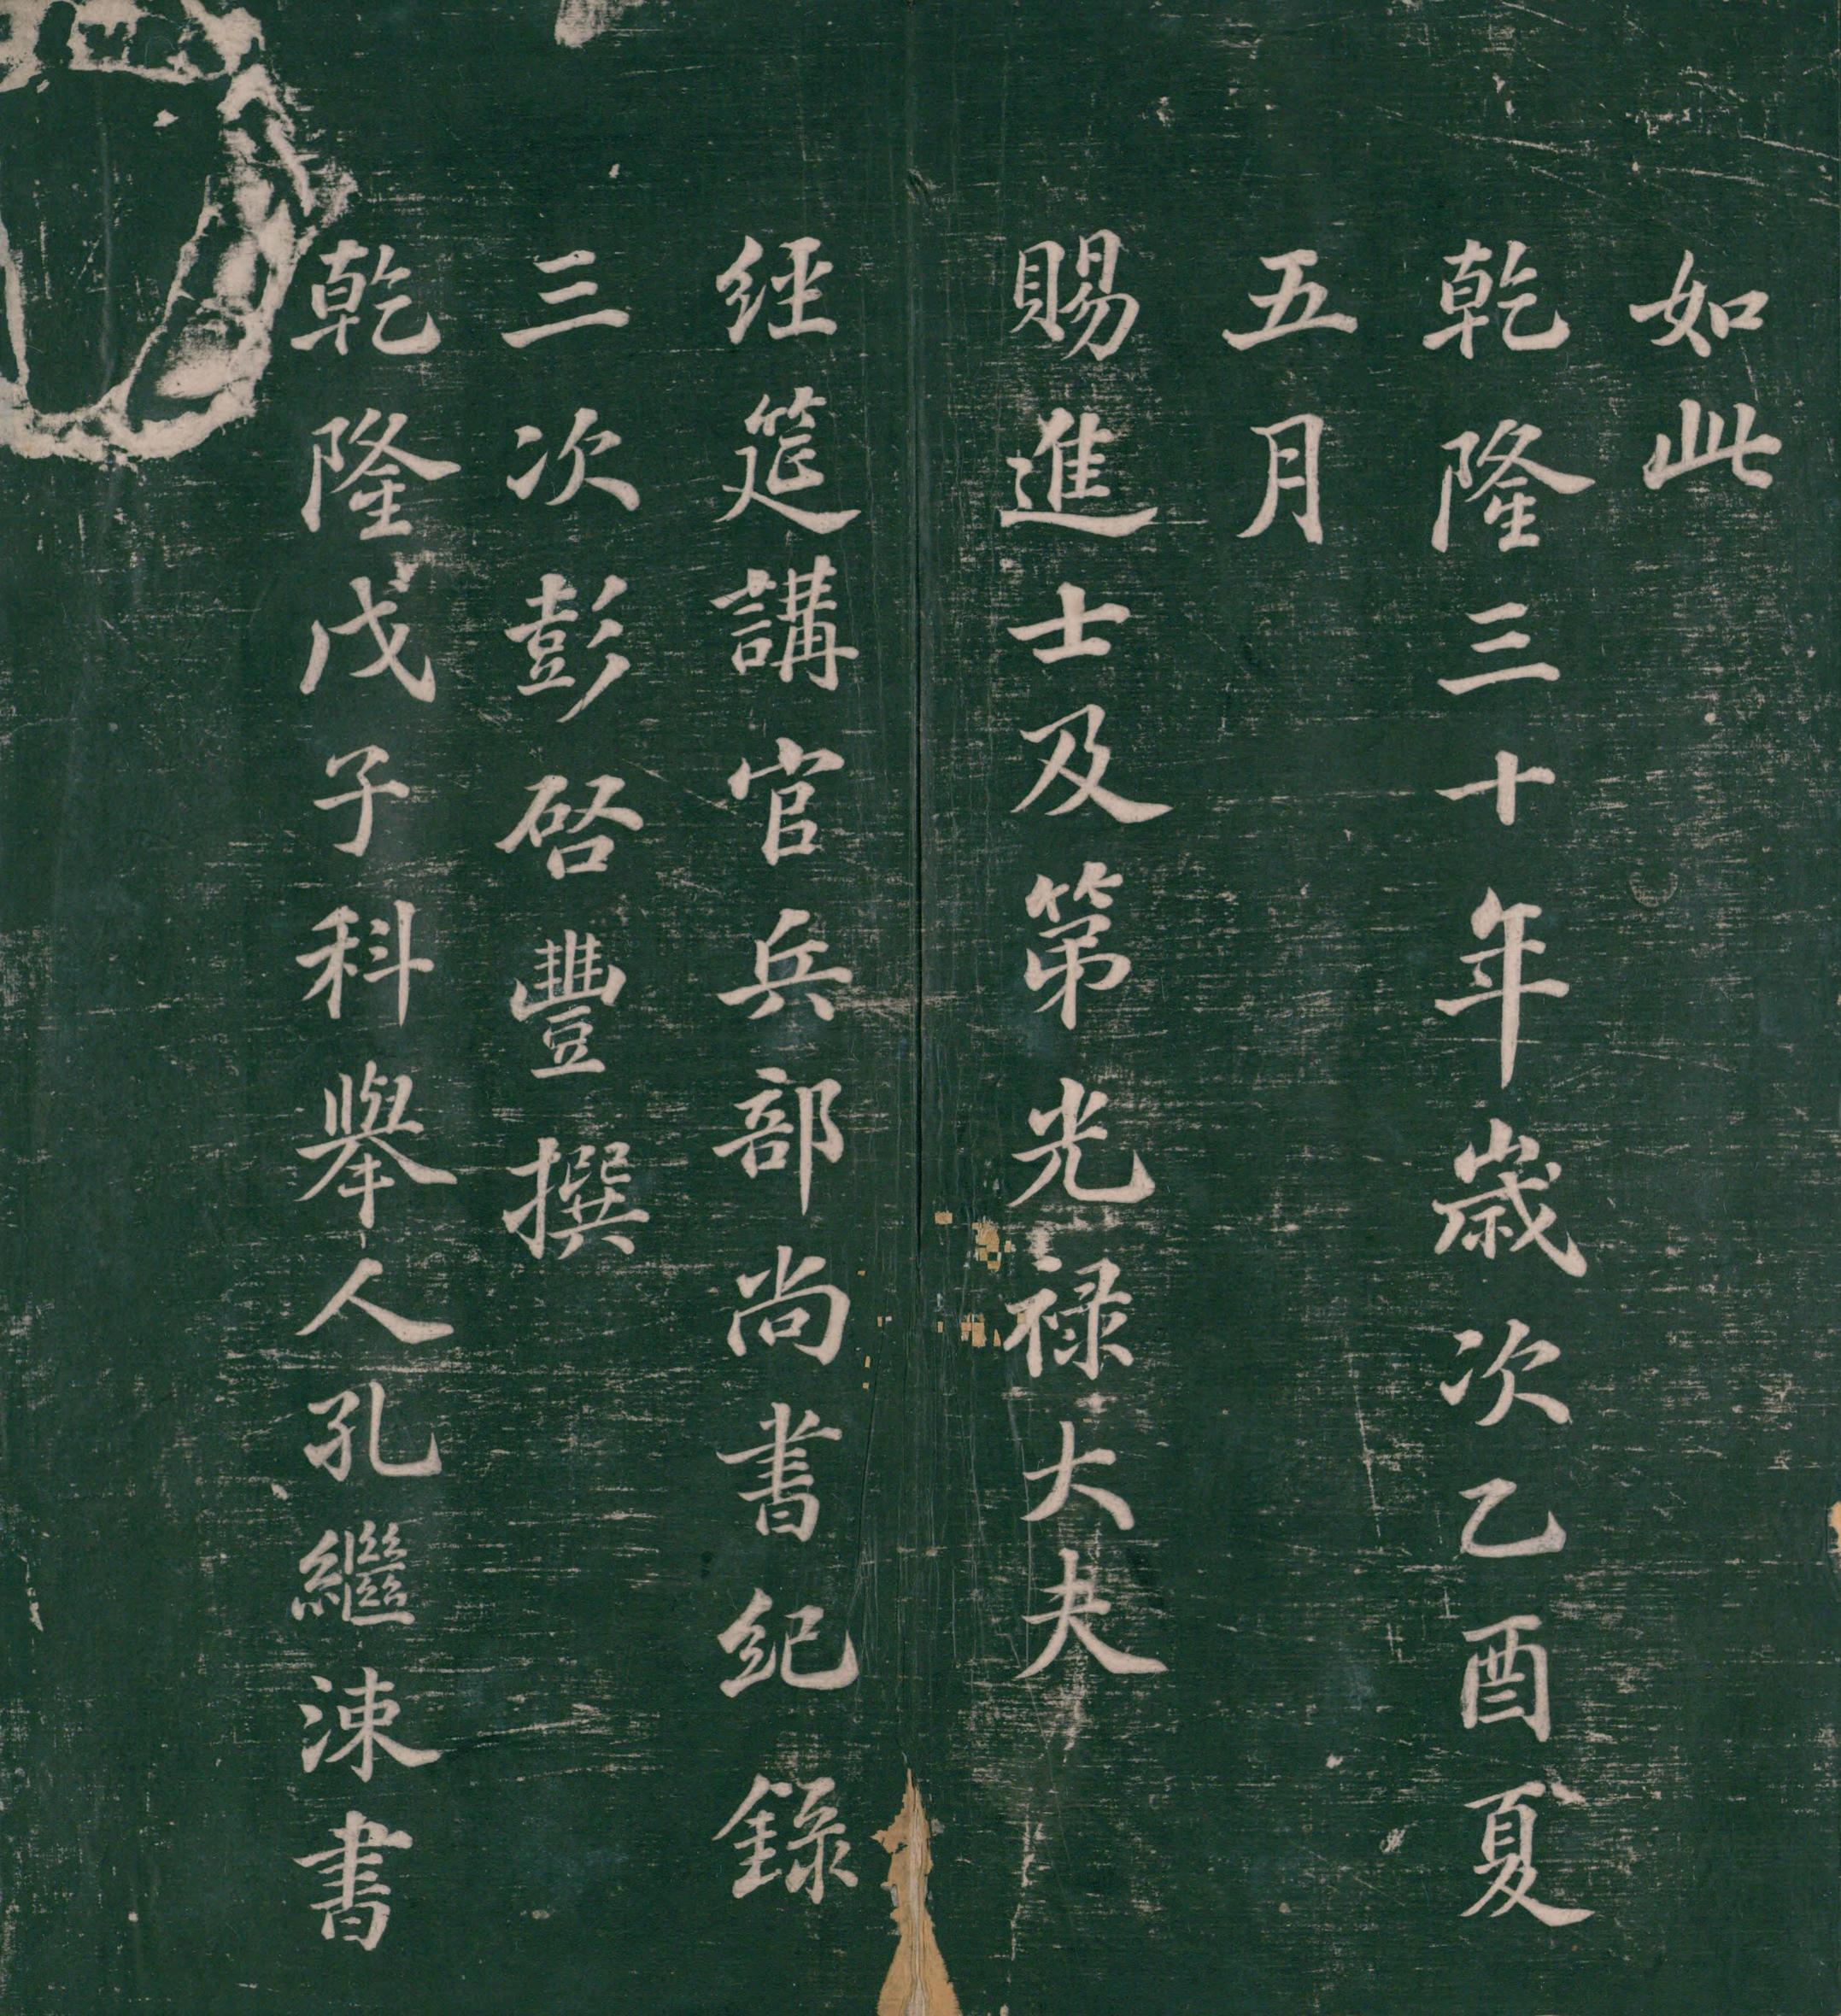 如此
乾隆三十年歲次乙酉夏
五月
賜進士及第光祿大夫
經筵講官兵部尚書紀錄
三次彭啓豐撰
乾隆戊子科舉人孔繼涑書